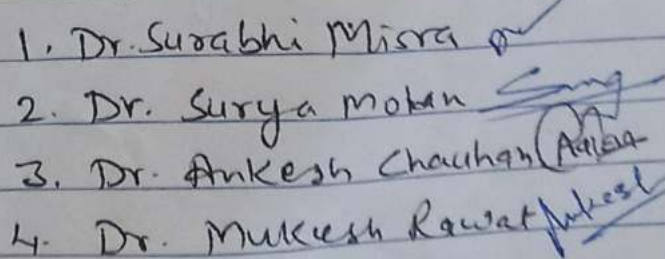 1. Dr. Surabhi Misra
2. Dr. Surya Mohan
3. Dr. Ankesh Chauhan
4. Dr. Mukesh Rawat